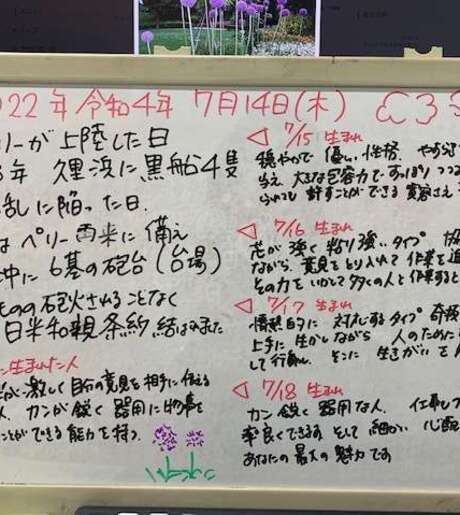 022年 令和4年 7月14日(木)
リーが上陸した日
年 久里浜に黒船4隻
乱に陥った日.
はペリー再来に備え
沖に6基の砲台(台場)
ものの砲火されることなく
日米和親条約 結はれました
に生まれた人
が激しく自分の意見を相手に伝える
人 カンが鋭く 器用に物事を
ことができる能力を持つ.
◁ 7/15 生まれ
穏やかで 優しい性格.
与え 大きな包容力ですっぽり
許すことができる 寛容さ
◁ 7/16 生まれ
芯が強く 粘り強いタイプ
ながら 意見をとり入れて 作業を
その力をいかして多くの人と作業すると
◁ 7/17 生まれ
情熱的に 対処するタイプ
上手に 生かしながら 人のために
して行動し そこに 生きがいを
◁ 7/18 生まれ
カン鋭く 器用な人.
率良くできます そして 細かい 心配
あなたの最大の魅力です